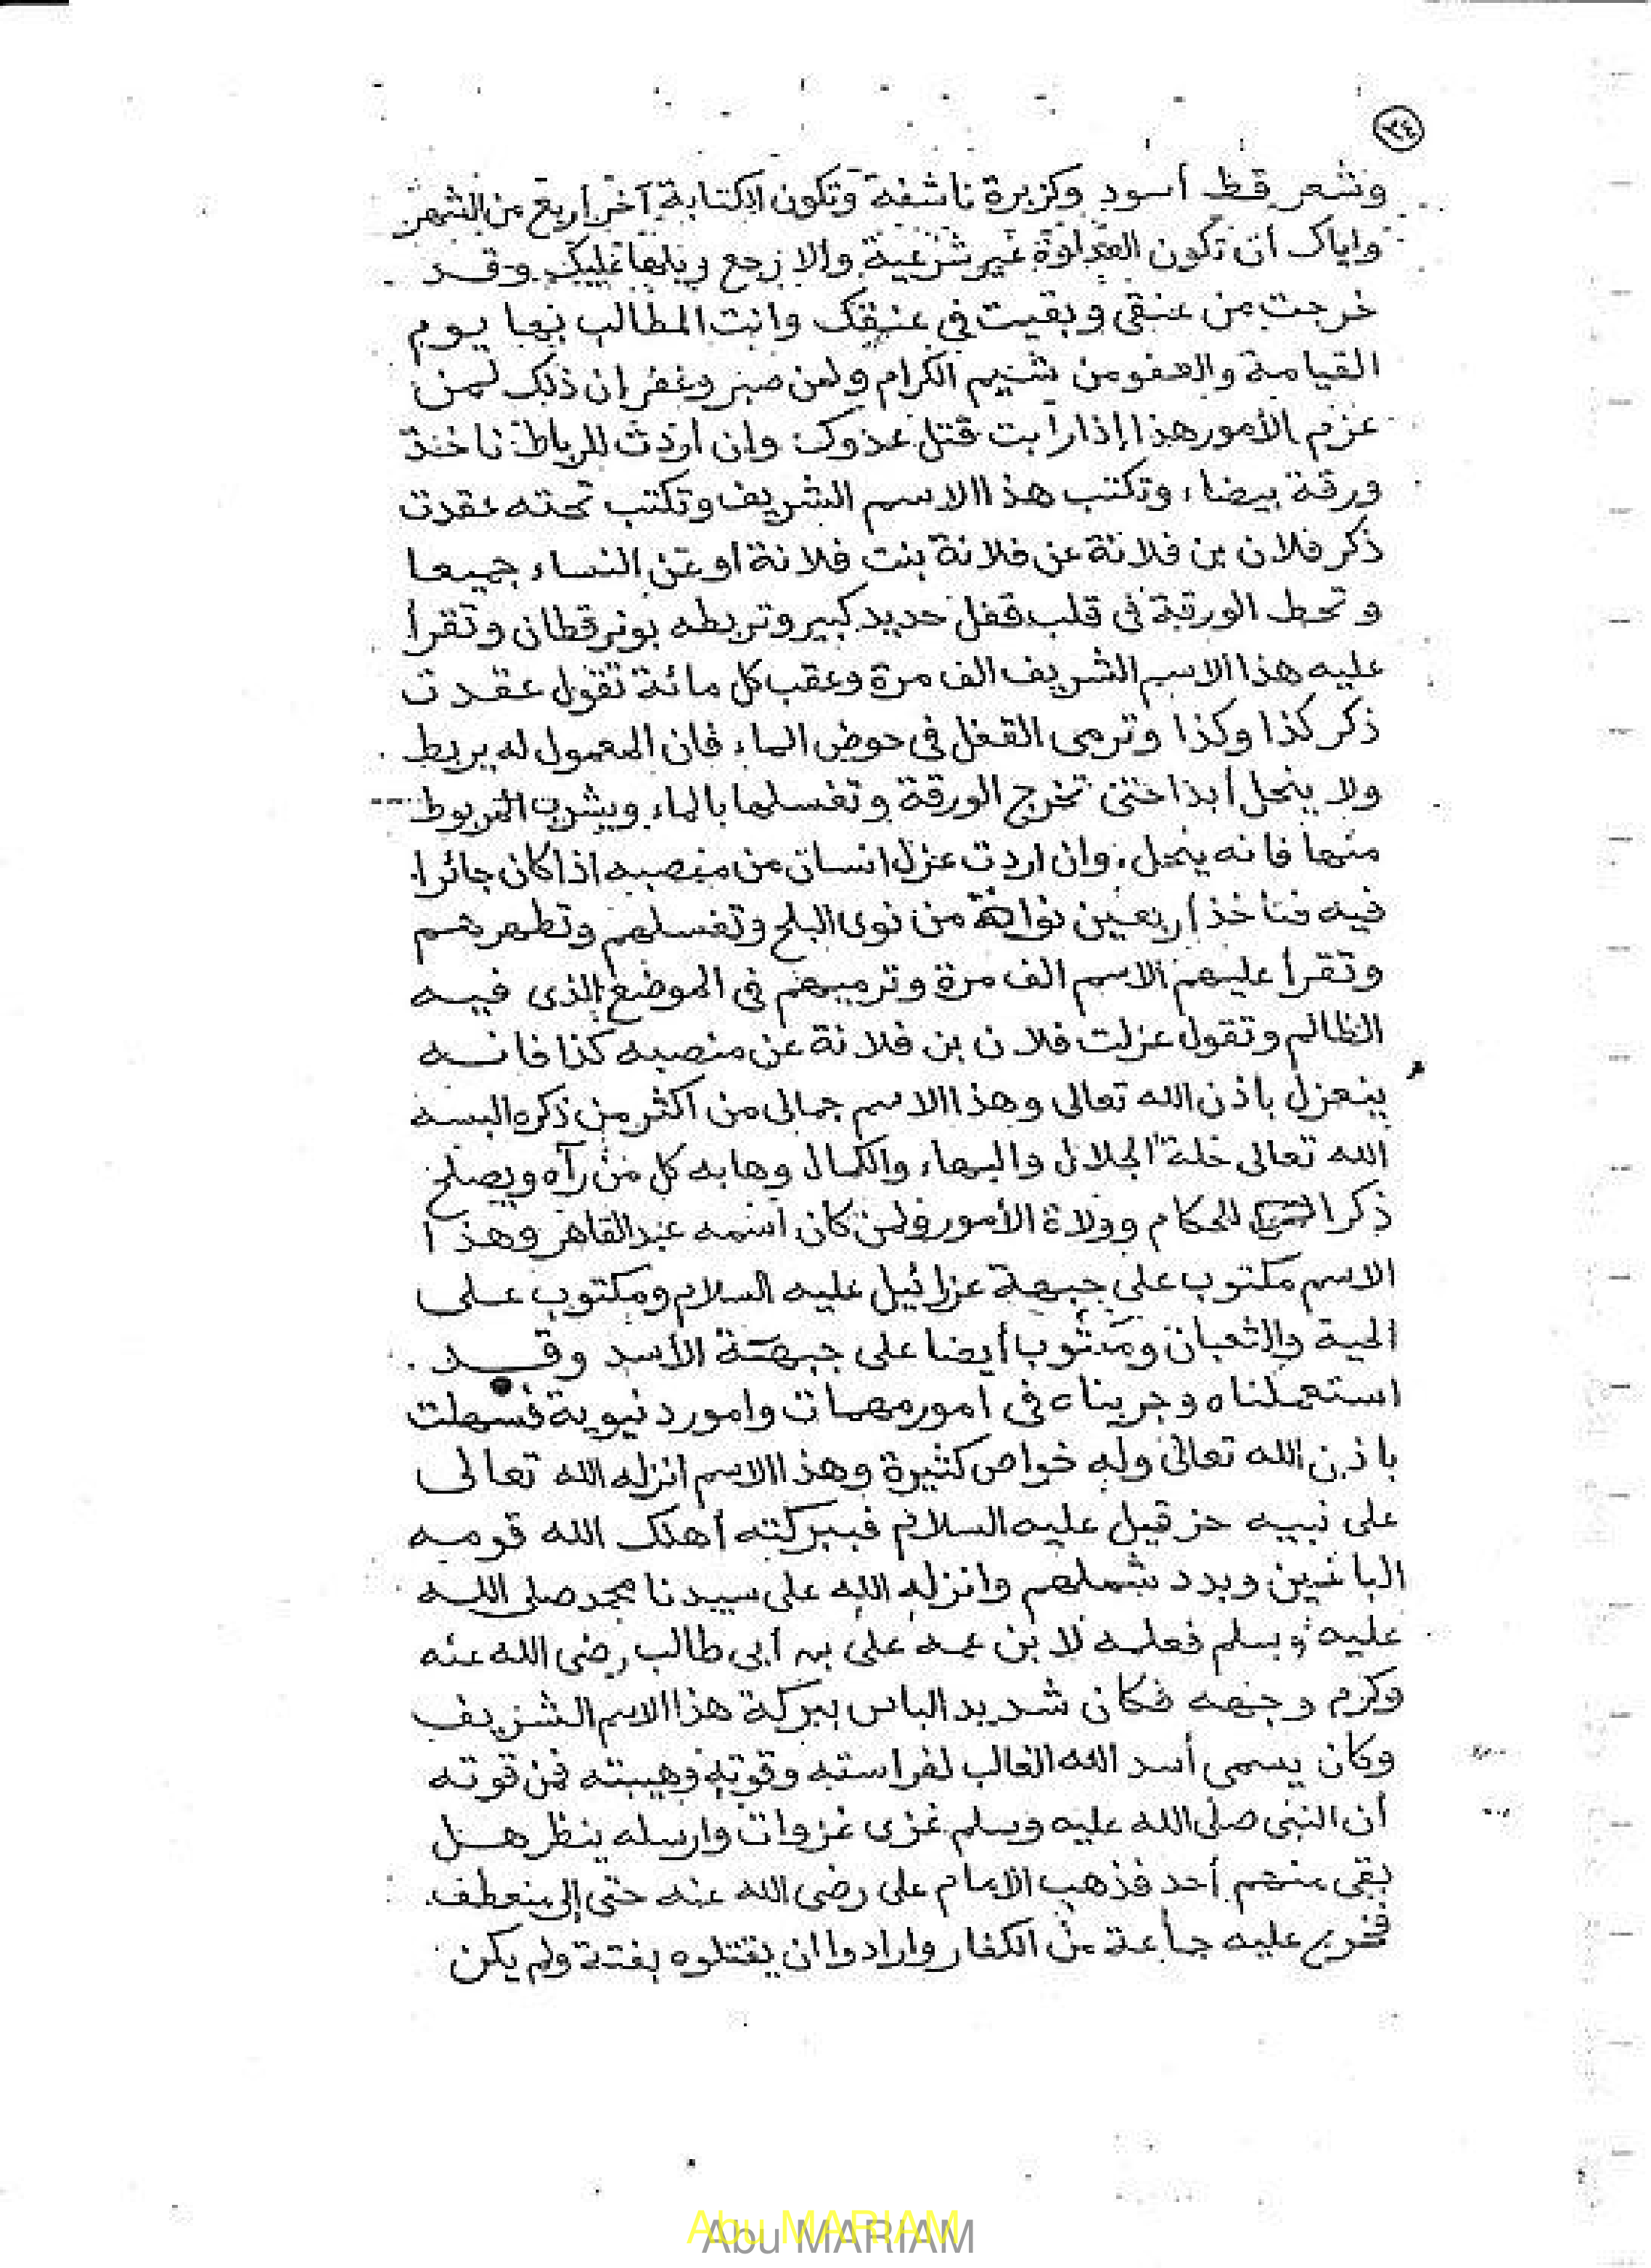 ٢٤
وشعر قط أسود وكزبرة ناشفة وتكون الكتابة آخر اربع من الشهر
واياك أن تكون العداوة غير شرعية والا رجع وبالها عليك وقد
خرجت من عنقى وبقيت في عنقك وانت المطالب بها يوم
القيامة والعفو من شيم الكرام ولمن صبر وغفر ان ذلك لمن
عزم الأمور هذا إذا رأيت قتل عدوك وإن اردت للرباط تاخذ
ورقة بيضاء وتكتب هذا الاسم الشريف وتكتب تحته عقدت
ذكر فلان بن فلانة عن فلانة بنت فلانة او عن النساء جميعا
وتحط الورقة فى قلب قفل حديد كبير وتربطه بوتر قطان وتقرأ
عليه هذا الاسم الشريف الف مرة وعقب كل مائة تقول عقدت
ذكر كذا وكذا وترمى القفل فى حوض الماء فان المعمول له يربط
ولا ينحل أبدا حتى تخرج الورقة وتغسلها بالماء ويشرب المربوط
منها فانه ينحل، وان اردت عزل انسان من منصبه اذا كان جائرا
فيه فتأخذ أربعين نواة من نوى البلح وتغسلهم وتطهرهم
وتقرأ عليهم الاسم الف مرة وترميهم فى الموضع الذى فيه
الظالم وتقول عزلت فلان بن فلانة عن منصبه كذا فانه
ينعزل باذن الله تعالى وهذا الاسم جمالى من اكثر من ذكره البسه
الله تعالى خلة الجلال والبهاء والكمال وهابه كل من رآه ويصلح
ذكرا للحكام وولاة الأمور ولمن كان اسمه عبد القاهر وهذا
الاسم مكتوب على جبهة عزرائيل عليه السلام ومكتوب على
الحية والثعبان ومكتوب أيضا على جبهة الأسد وقد
استعملناه وجربناه فى امور مهمات وامور دنيوية فسهلت
باذن الله تعالى وله خواص كثيرة وهذا الاسم انزله الله تعالى
على نبيه حزقيل عليه السلام فببركته أهلك الله قومه
الباغين وبدد شملهم وانزله الله على سيدنا محمد صلى الله
عليه وسلم فعلمه لابن عمه على بن أبى طالب رضى الله عنه
وكرم وجهه فكان شديد الباس ببركة هذا الاسم الشريف
وكان يسمى أسد الله الغالب لفراسته وقوته وهيبته فمن قوته
أن النبى صلى الله عليه وسلم غزى غزوات وارسله ينظر هل
بقى منهم أحد فذهب الامام على رضى الله عنه حتى إلى منعطف
فخرج عليه جماعة من الكفار وارادوا ان يقتلوه بغتة ولم يكن
Abu MARIAM